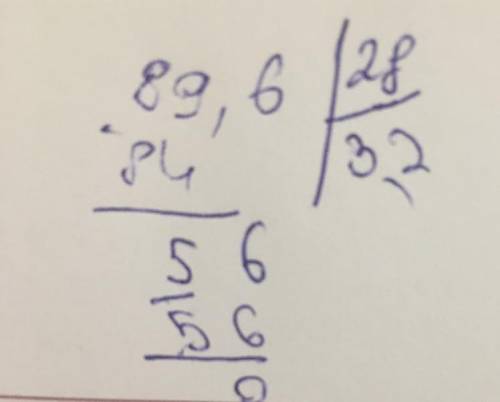 89,6 | 28
84 | 3,2
5 6
5 6
0